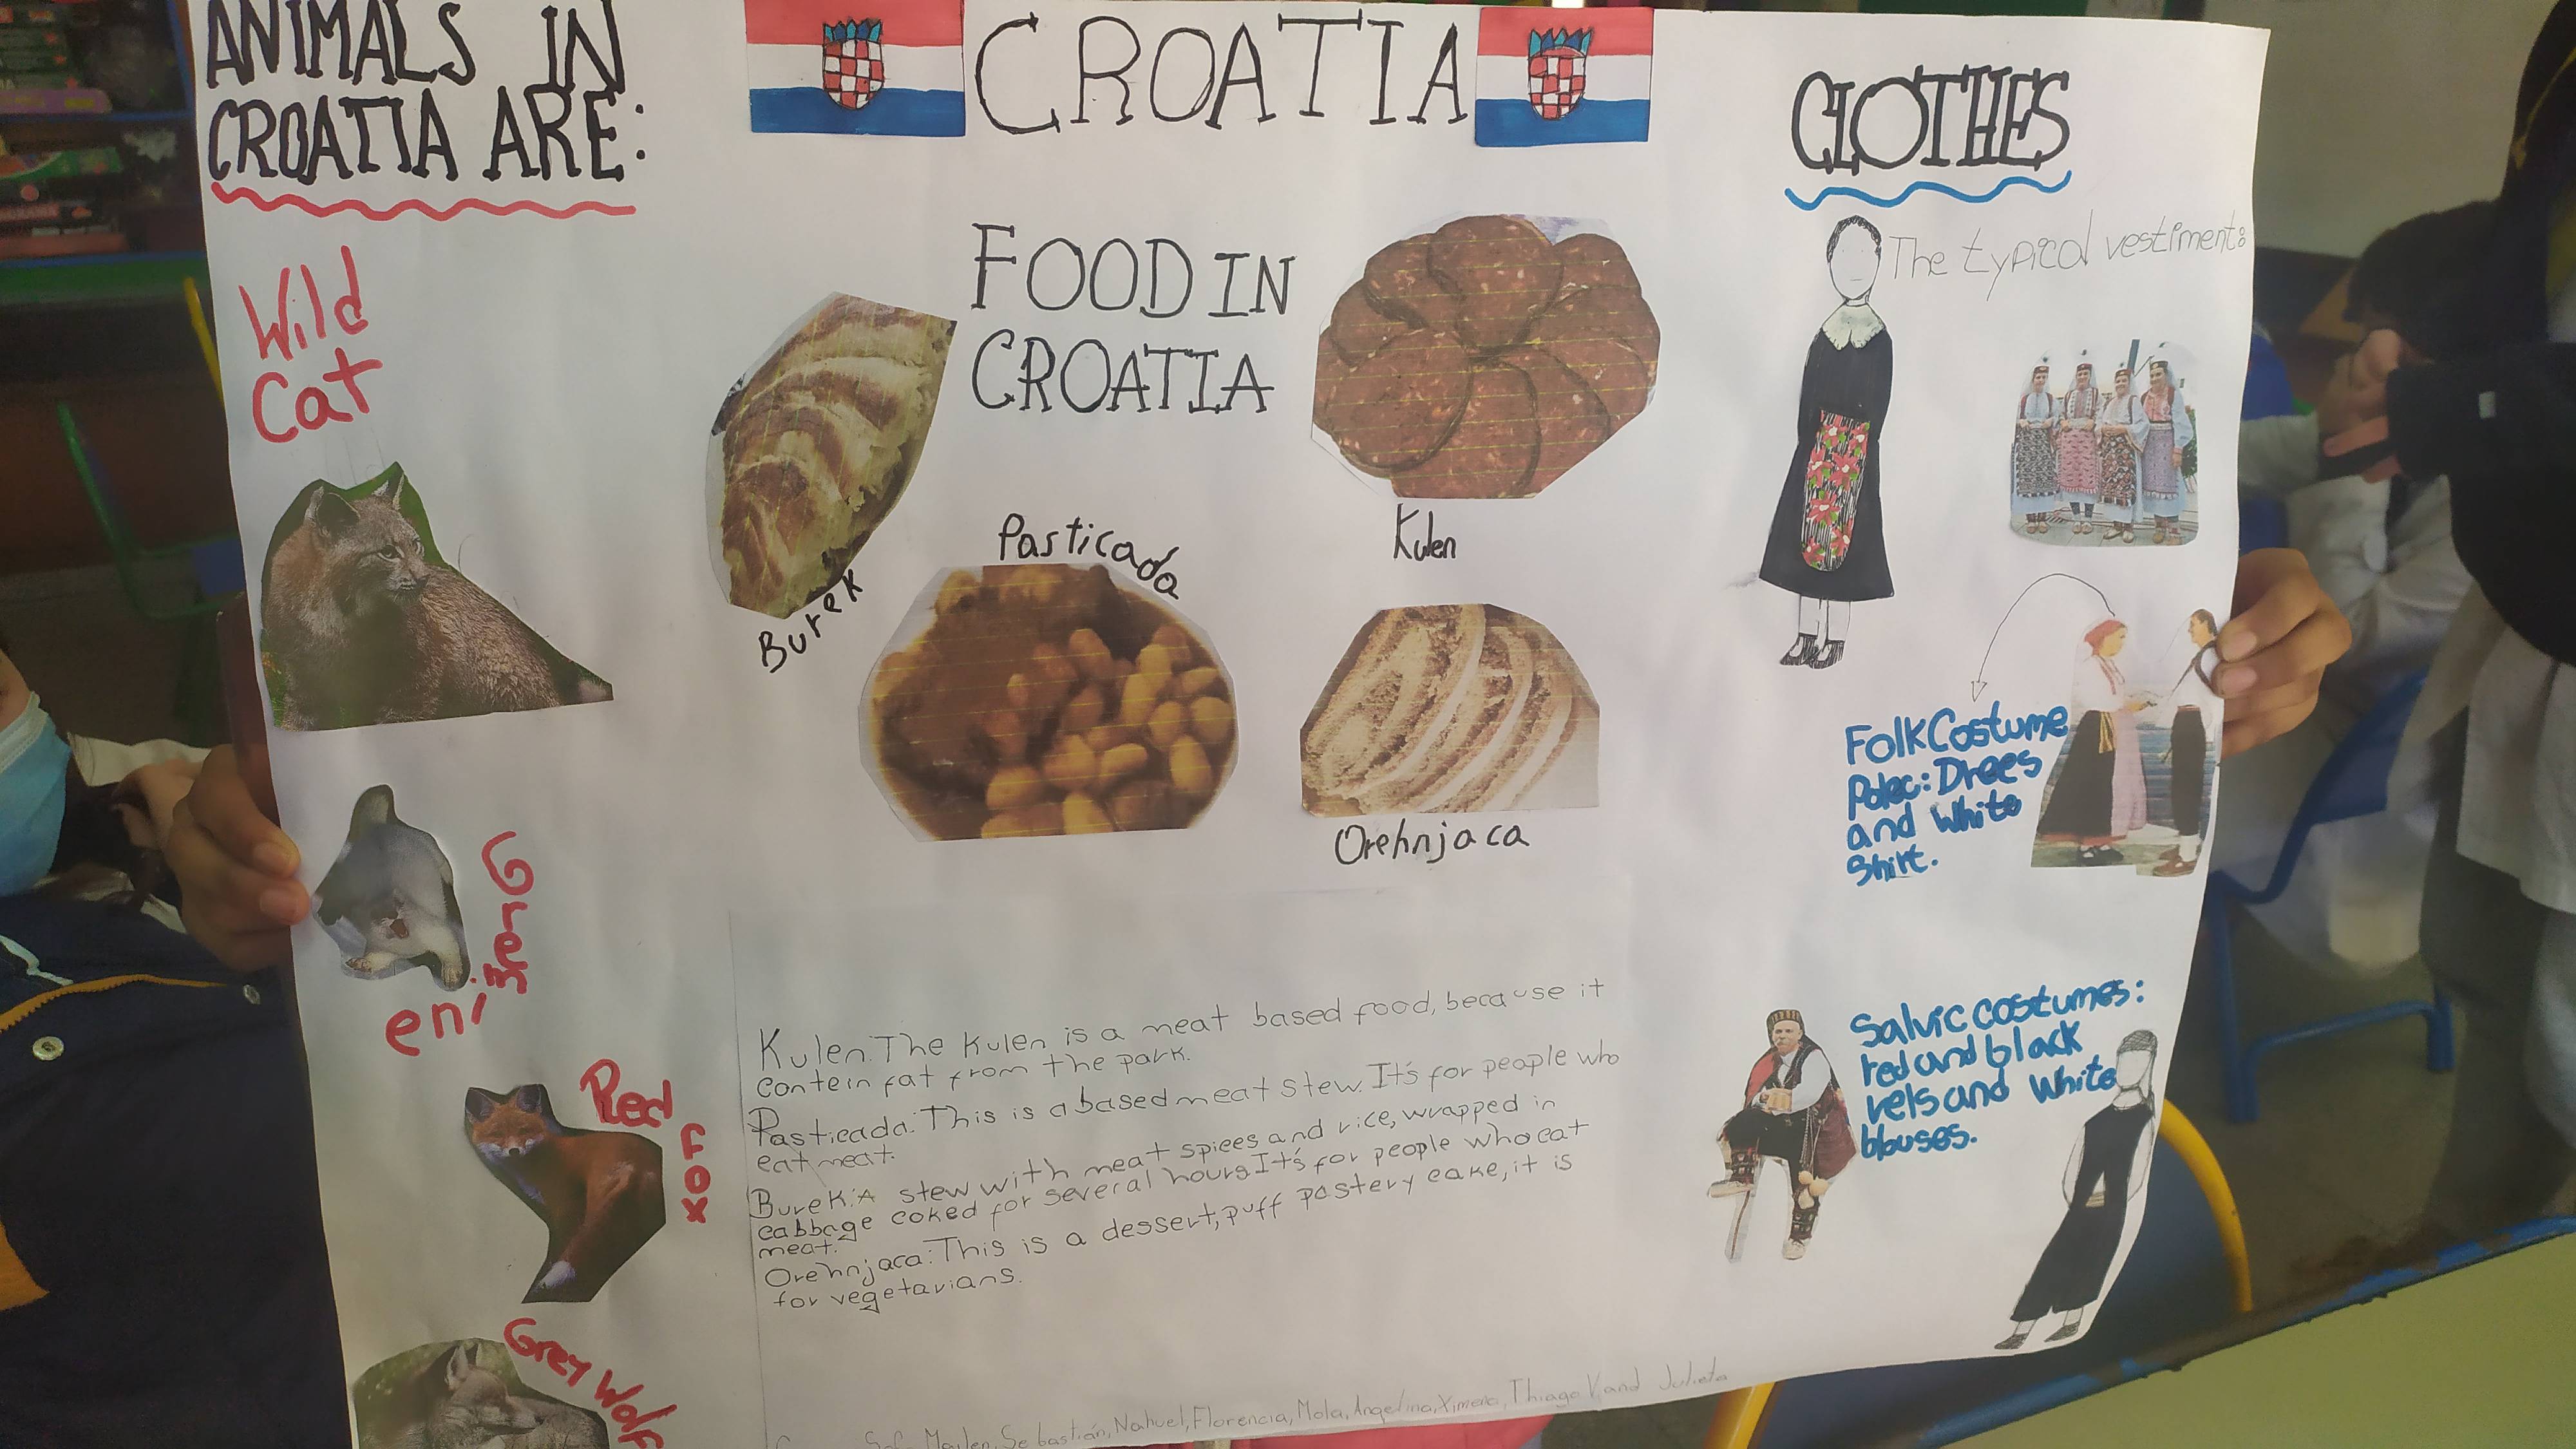 ANIMALS IN
CROATIA ARE:
Wild
Cat
Grey
Wolf
Red
Fox
CROATIA
FOOD IN
CROATIA
Burek
Pasticada
Kulen
Orehnjaca
Kulen: The Kulen is a meat based food, because it
contein fat from the park.
Pasticada: This is a based meat stew. It's for people who
eat meat.
Burek: A stew with meat spices and rice, wrapped in
cabbage coked for several hours It's for people who eat
meat.
Orehnjaca: This is a dessert, puff pastery cake, it is
for vegetarians.
Maylen, Sebastián, Nahuel, Florencia, Mola, Angelina, Ximena, Thiago V, and Julieta
CLOTHES
The typical vestiment:
Folk Costume
Polec: Drees
and White
Shirt.
Salvic costumes:
red and black
vels and White
blouses.